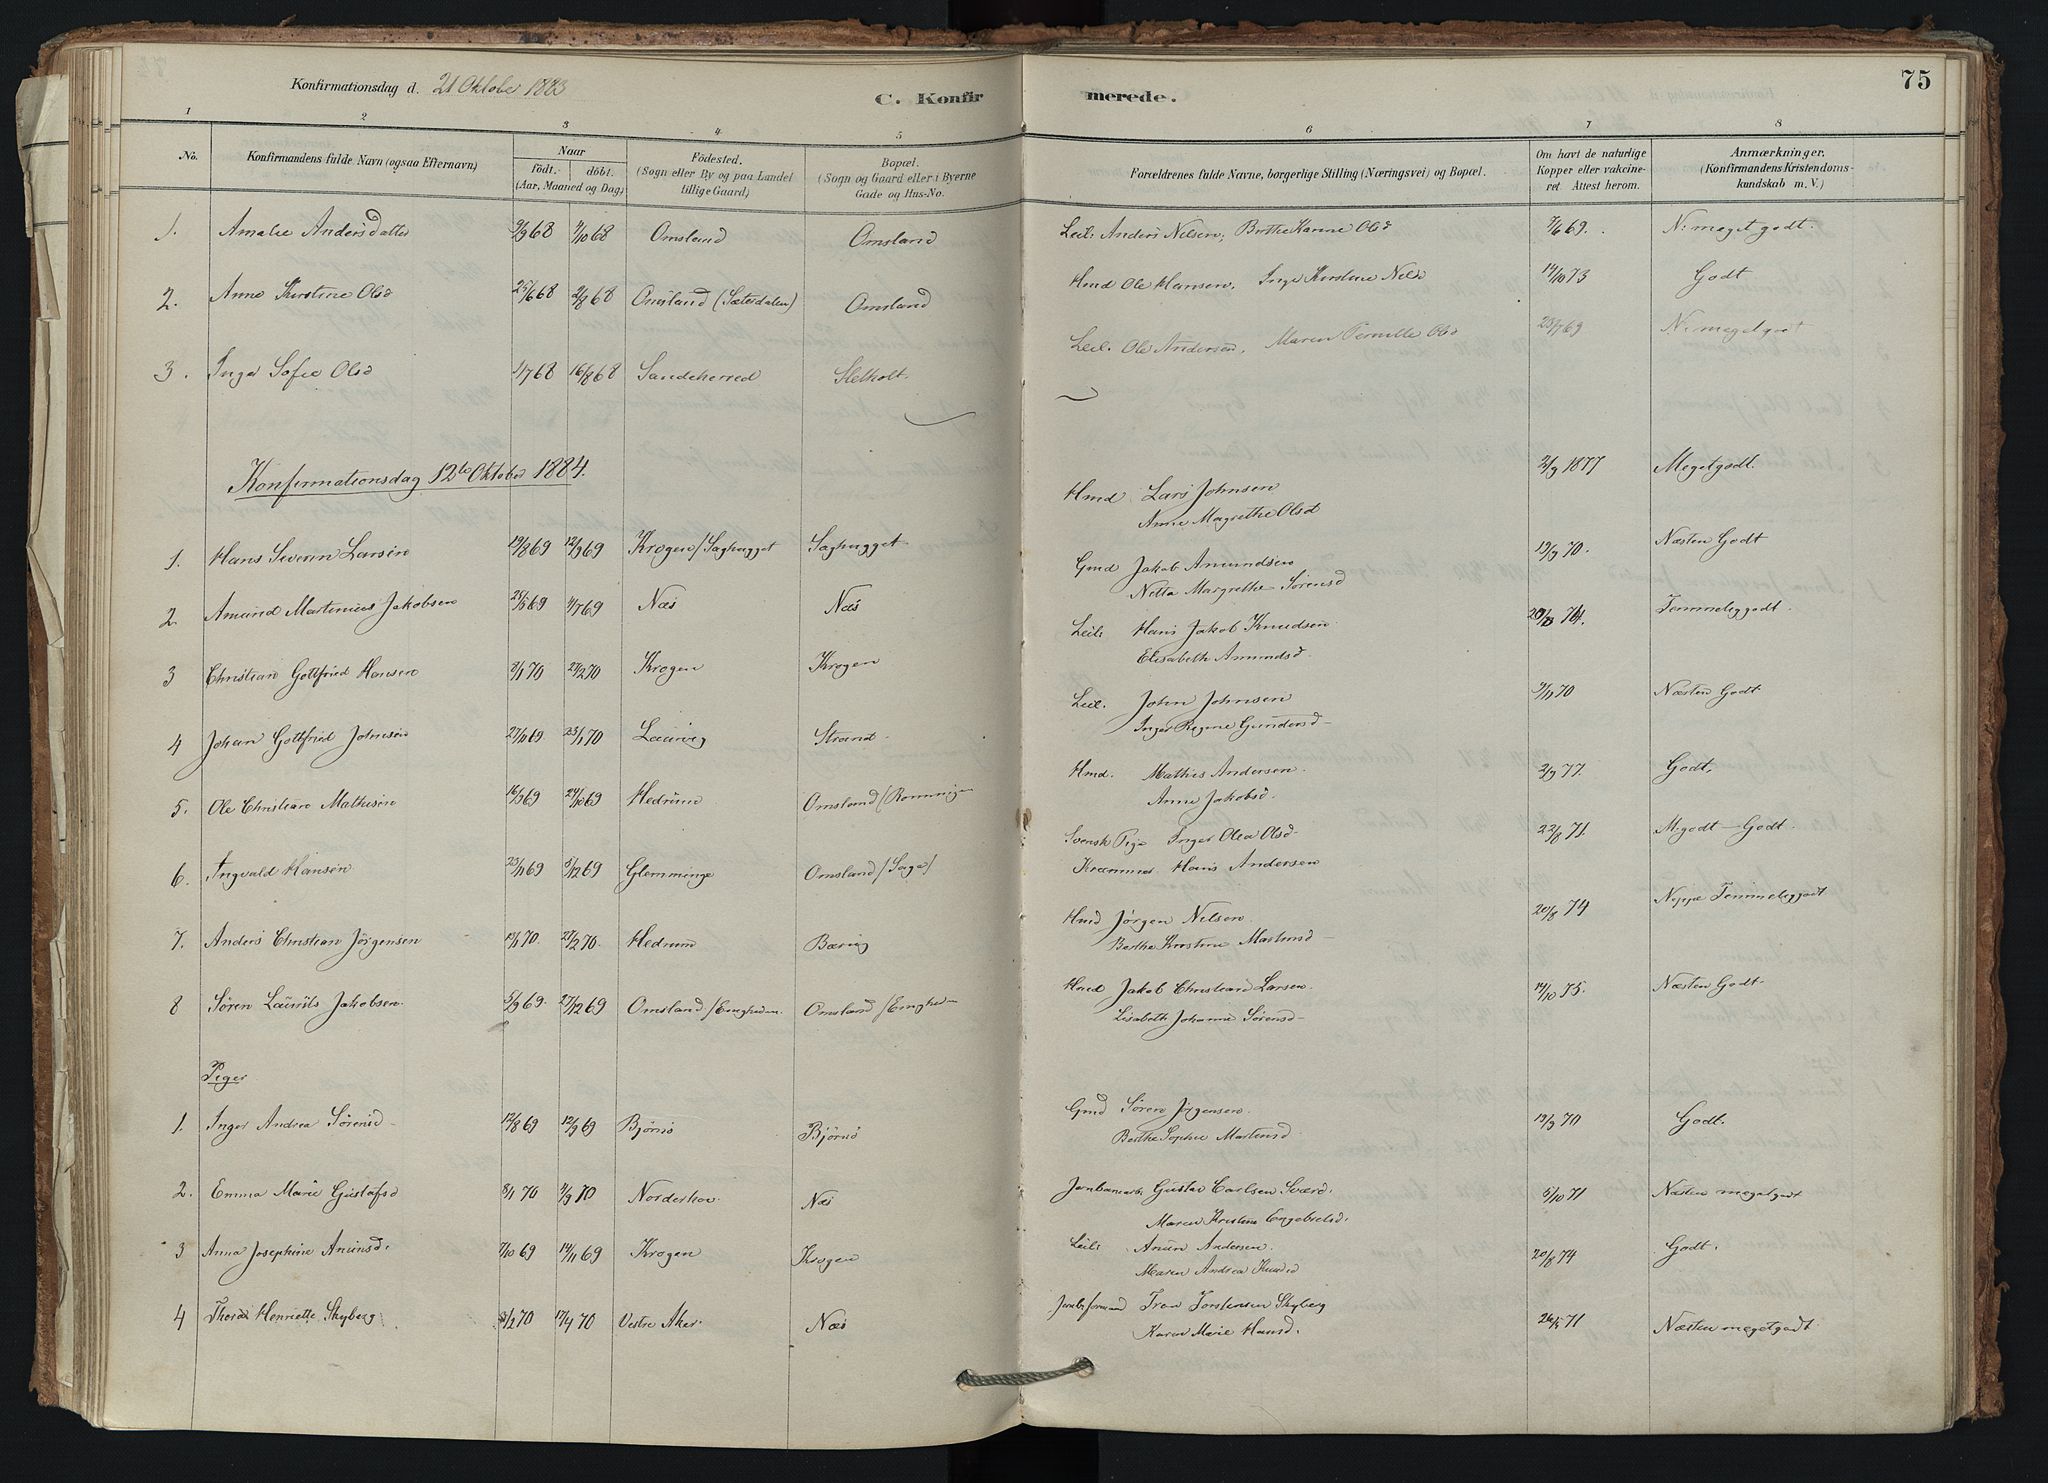 Konfirmationsdag d. 21 Oktober 1883
C. Konfirmerede.
75
1 2 3 4 5 6 7 8
No. Konfirmandens fulde Navn (ogsaa Efternavn) Naar födt. döbt. (Aar, Maaned og Dag) Födested. (Sogn eller By og paa Landet tillige Gaard) Bopæl. (Sogn og Gaard eller i Byerne Gade og Hus-No. Forældrenes fulde Navne, borgerlige Stilling (Næringsvei) og Bopæl. Om havt de naturlige Kopper eller vakcineret Attest herom. Anmærkninger. (Konfirmandens Kristendomskundskab m. V.)
1. Amalie Andersdatter 9/9 68 4/10 68 Omsland Omsland Leil. Anders Nilsen, Berthe Karine Olsd 7/6 69. N. meget godt.
2. Anne Kirstine Olsd 25/6 68 2/8 68 Omsland (Sæterdalen) Omsland Hmd Ole Hansen, Inge Kirstine Nilsd 14/10 73 Godt
3. Inger Sofie Olsd 1/7 68 16/8 68 Sandeherred Sletholt Leil. Ole Andersen, Maren Pernille Olsd 25/7 69 N. meget godt
Konfirmationsdag 12te Oktober 1884.
1. Hans Severin Larsen 19/8 69 12/9 69 Krogen/Saghugget Saghugget Hmd Lars Johnsen 2/9 1877 Meget godt.
Anne Magrethe Olsd
2. Amund Martinius Jakobsen 25/5 69 4/7 69 Næs Næs Gmd Jakob Amundsen 19/9 70. Næsten Godt
Netta Margrethe Sørensd
3 Christian Gottfried Hansen 2/1 70 27/2 70 Krogen Krogen Leil. Hans Jakob Knudsen 20/8 74. Temmeliggodt.
Elisabeth Amundsd.
4 Johan Gottfried Johnsen 27/10 69. 23/1 70 Laurvig Strand Leil. John Johnsen 9/11 70 Næsten Godt
Inger Regine Gundersd
5. Ole Christian Mathisen 16/9 69 24/10 69 Hedrum Omsland (Rønningen Hmd. Mathis Andersen. 2/9 77. Godt,
Anne Jakobsd.
6. Ingvald Hansen 23/11 69 5/12 69 Glemminge Omsland/Saga/ Svensk Pige Inger Olea Olsd 22/8 71. M. godt – Godt.
Kræmmer Hans Andersen
7. Anders Christian Jørgensen 13/1 70. 27/2 70. Hedrum Bærug Hmd Jørgen Nilsen. 20/8 74 Neppe Temmeliggodt
Berthe Kristine Martinsd
8 Søren Lauritz Jakobsen. 5/9 69. 27/12 69 Omsland/Engheden. Omsland/Engheden Hmd Jakob Christian Larsen 14/10 75. Næsten Godt.
Lisabeth Johanne Sørensd
Piger
1. Inger Andrea Sørensd 12/8 69 12/9 69 Bjørnø Bjørnø Gmd Søren Jørgensen. 19/9 70 Godt.
Berthe Sophie Martinsd.
2. Emma Marie Gustafsd 8/1 70 4/9 70 Norderhov Næs Jernbanearb. Gustav Carlsen Sværd. 5/10 71 Næsten megetgodt
Maren Kristine Engebretsd.
3 Anna Josephine Anunsd. 7/10 69 14/11 69 Krogen Krogen Leil. Anun Andersen. 20/8 74 Godt.
Maren Andrea Knudsd
4 Thora Henriette Skyberg 3/2 70 17/4 70 Vestre Aker. Næs Jernbformand Iver Torstensen Skyberg 26/5 71 Næsten megetgodt
Karen Marie Hansd.